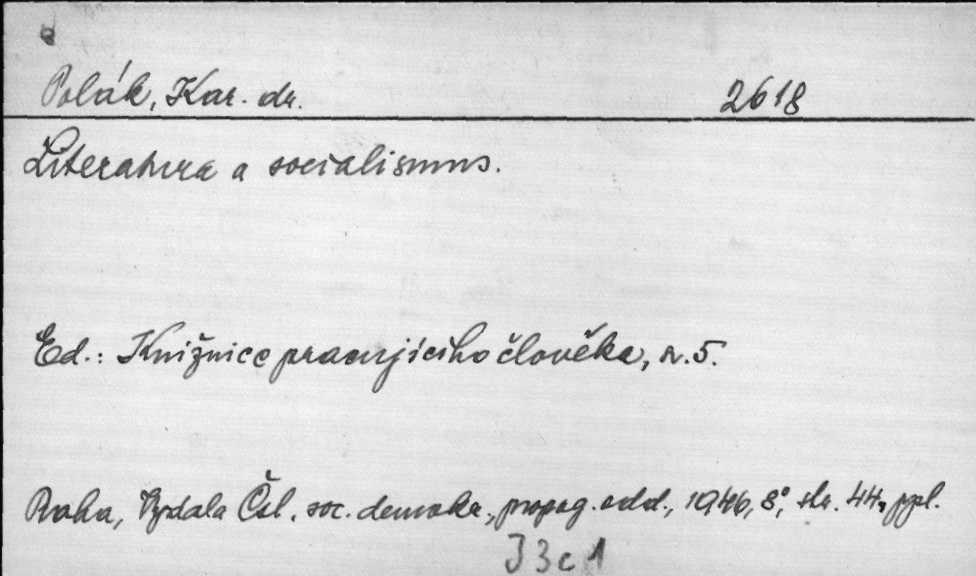 Polák, Kar. dr. 2618
Literatura a socialismus.
Ed.: Knižnice pracujícího člověka, sv. 5.
Praha, Vydala Čsl. soc. demokr., propag. odd., 1946, 8°, str. 44, ppl.
J3c1